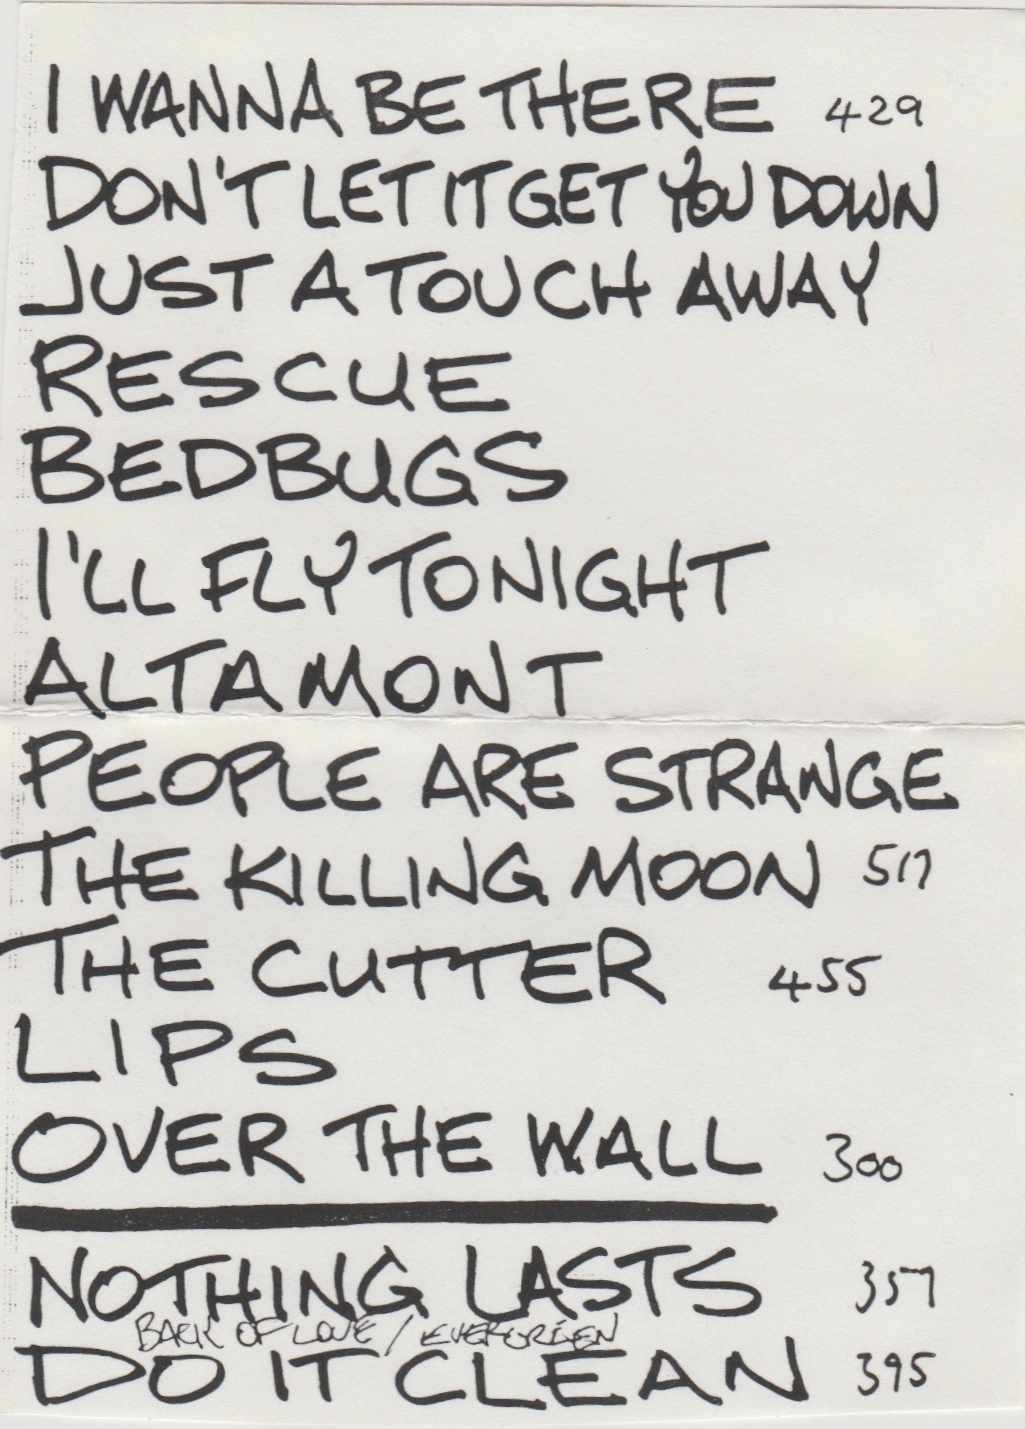 I WANNA BE THERE 429
DON'T LET IT GET YOU DOWN
JUST A TOUCH AWAY
RESCUE
BEDBUGS
I'LL FLY TONIGHT
ALTAMONT
PEOPLE ARE STRANGE
THE KILLING MOON 517
THE CUTTER 455
LIPS
OVER THE WALL 300
NOTHING LASTS 357
BACK OF LOVE / EVERGREEN
DO IT CLEAN 395